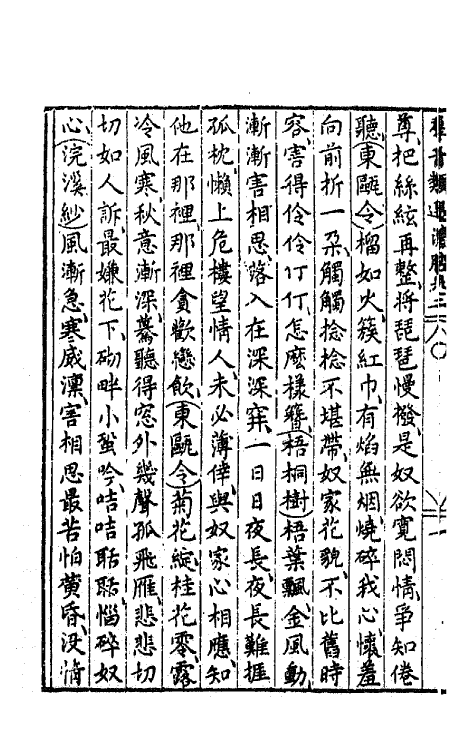 群音類選 清腔卷三
尊、把絲絃再整、將琵琶慢撥、是奴欲寬悶情、爭知倦
聽、(東甌令)榴如火、簇紅巾、有焰無烟燒碎我心、懷羞
向前折一朶、觸觸捻捻不堪帶、奴家花貌、不比舊時
容、害得伶伶仃仃、怎麽樣簪、(梧桐樹)梧葉飄、金風動、
漸漸害相思、落入在深深穽、一日日夜長、夜長難捱
孤枕、懶上危樓望情人、未必薄倖、與奴家心相應、知
他在那裡、那裡貪歡戀飲、(東甌令)菊花綻、桂花零、露
冷風寒、秋意漸深、驀聽得窓外幾聲孤飛雁、悲悲切
切如人訴、最嫌花下、砌畔小蛩吟、咭咭聒聒、惱碎奴
心、(浣溪紗)風漸急、寒威凜、害相思最苦怕黄昏、没情